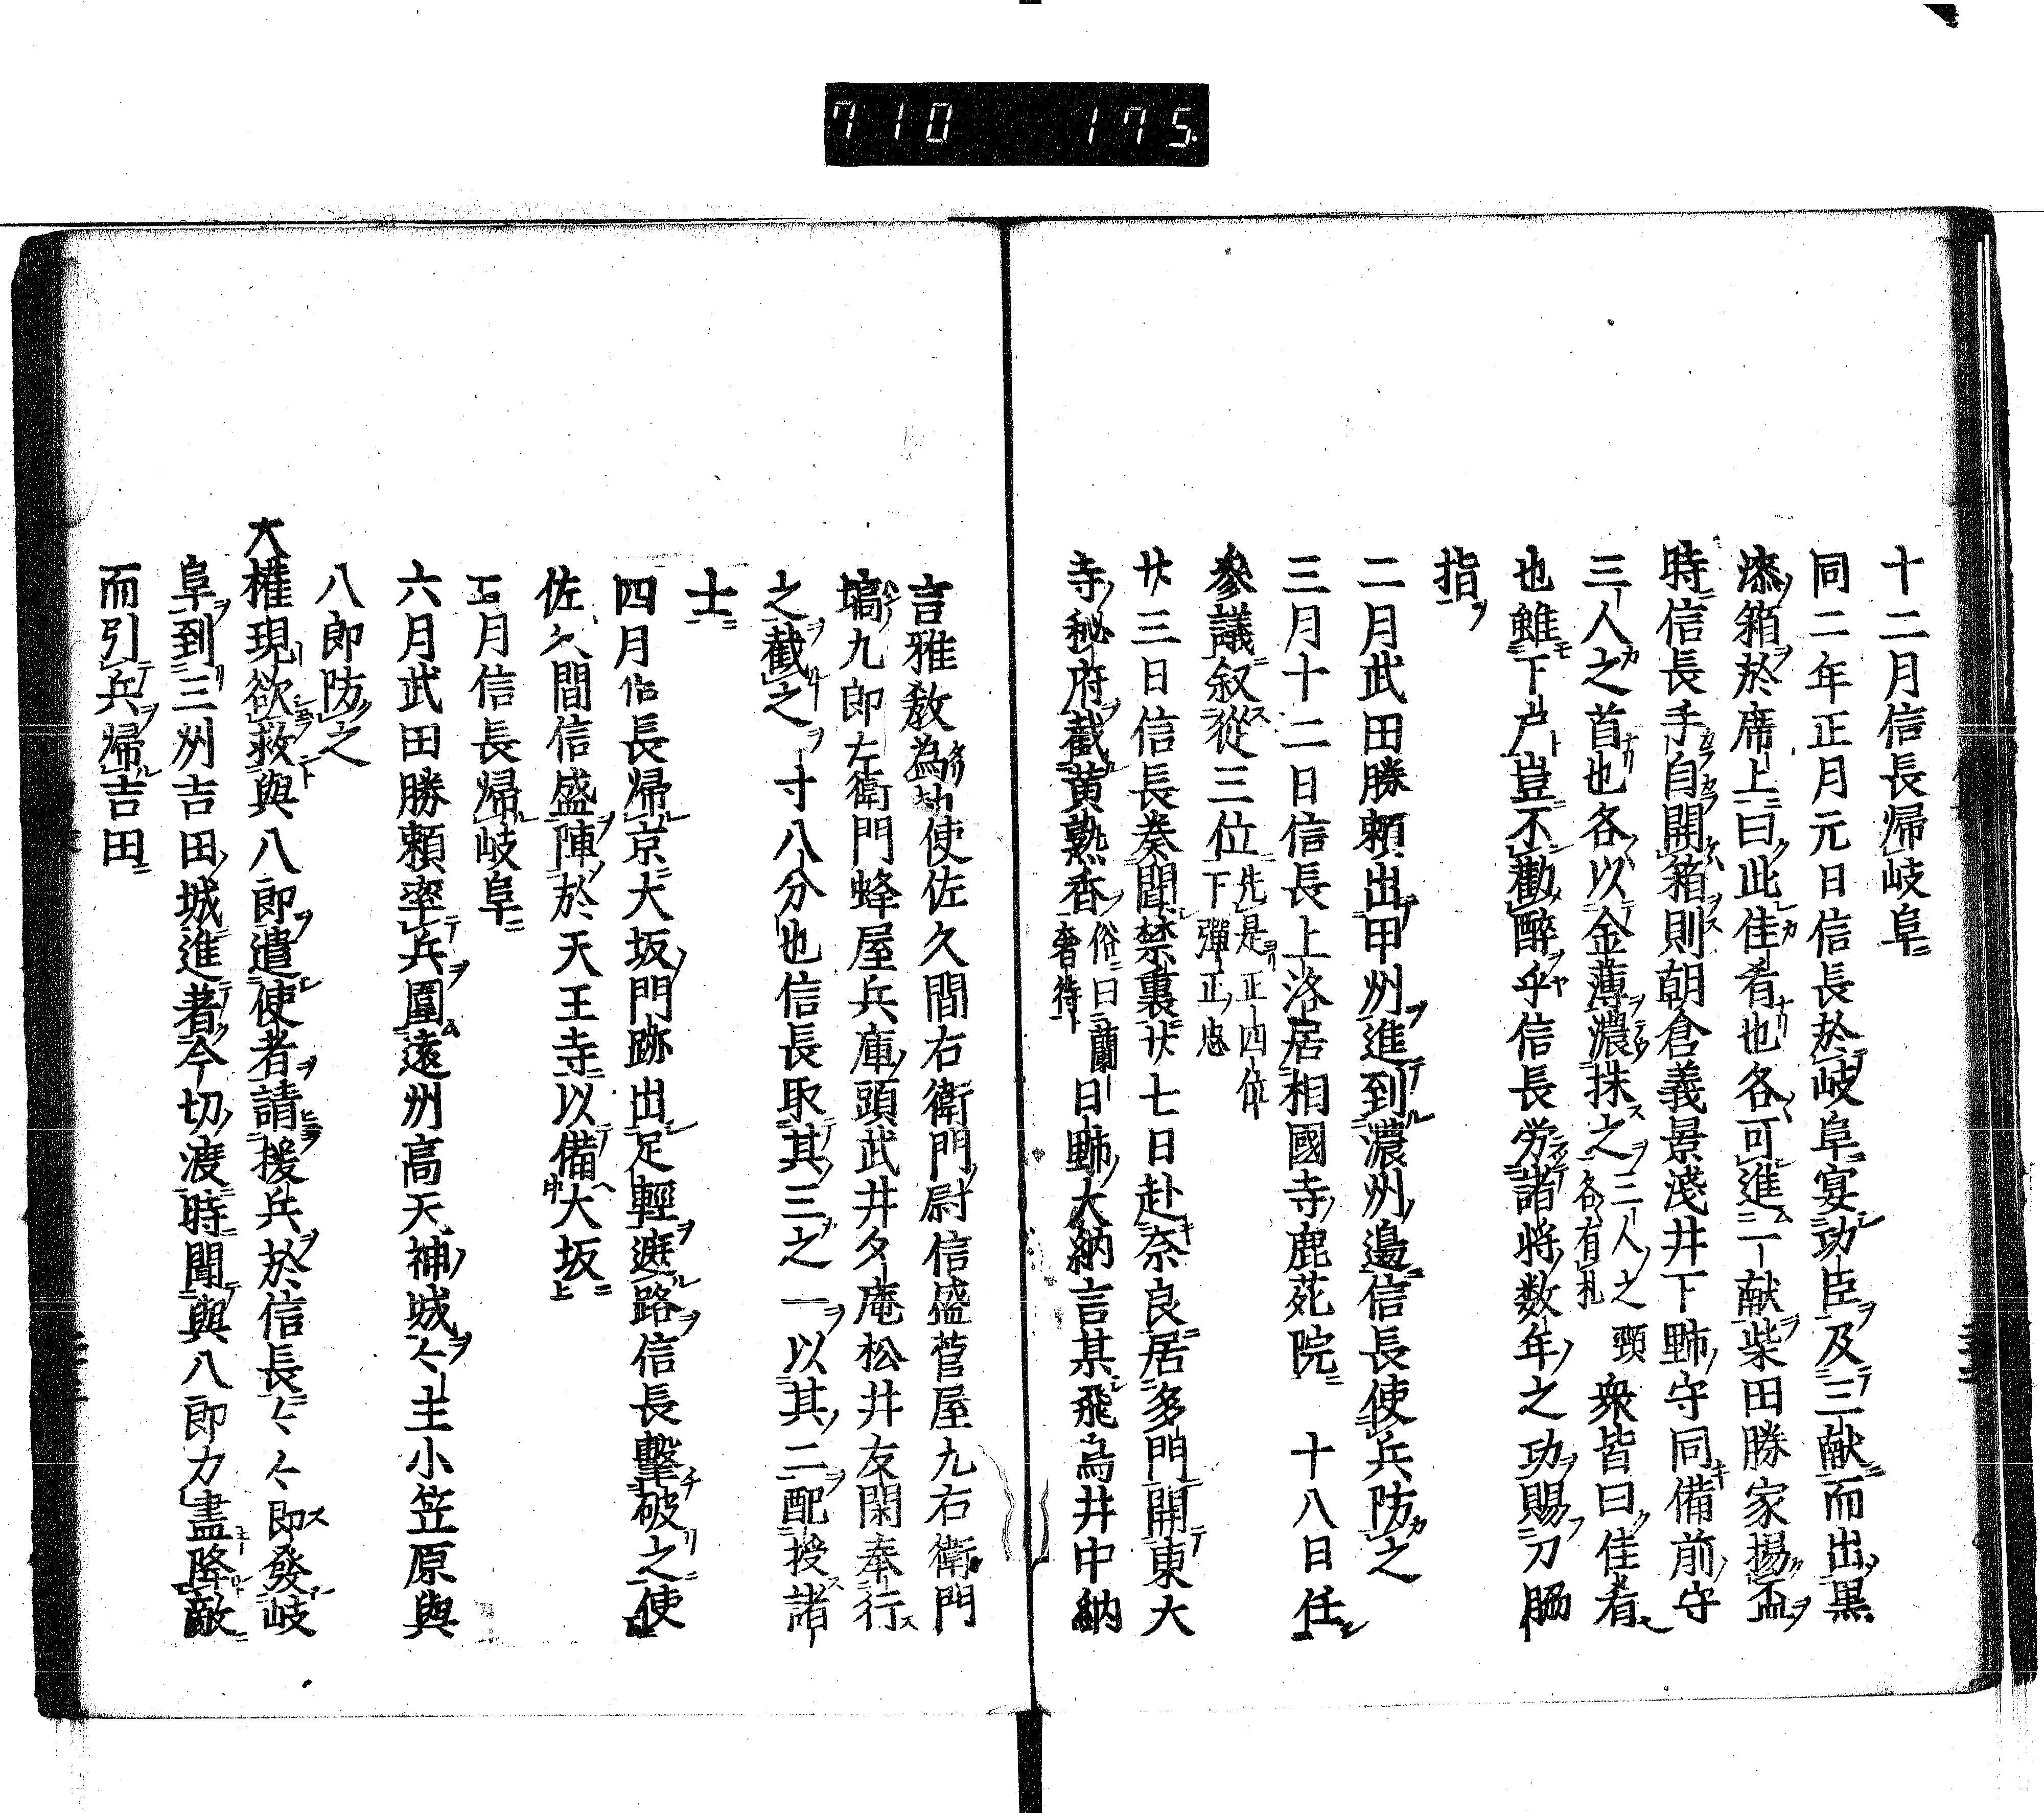 710 175
十二月信長帰岐阜
同二年正月元日信長於岐阜宴功臣及三献而出黒
漆箱於席上曰此佳肴也各可進一献柴田勝家揚盃
時信長手自開箱則朝倉義景淺井下野守同備前守
三人之首也各以金薄濃抹之三人之頸各有札衆皆曰佳肴
也雖下戸豈不勸醉乎信長労諸将数年之功賜刀脇
指
二月武田勝頼出甲州進到濃州邉信長使兵防之
三月十二日信長上洛居相國寺鹿苑院 十八日任
參議叙從三位先是正四位下彈正忠
廿三日信長奏聞禁裏廿七日赴奈良居多門開東大
寺秘府截黄熟香俗曰蘭奢待日野大納言某飛鳥井中納
言雅教為勅使佐久間右衛門尉信盛菅屋九右衛門
塙九郎左衛門蜂屋兵庫頭武井夕庵松井友閑奉行
之截之一寸八分也信長取其三之一以其二配授諸
士
四月信長帰京大坂門跡出足輕遮路信長擊破之使
佐久間信盛陣於天王寺以備大坂
五月信長帰岐阜
六月武田勝頼率兵圍遠州高天神城〻主小笠原與
八郎防之
大權現欲救與八郎遣使者請援兵於信長〻〻即發岐
阜到三州吉田城進者今切渡時聞與八郎力盡降敵
而引兵帰吉田